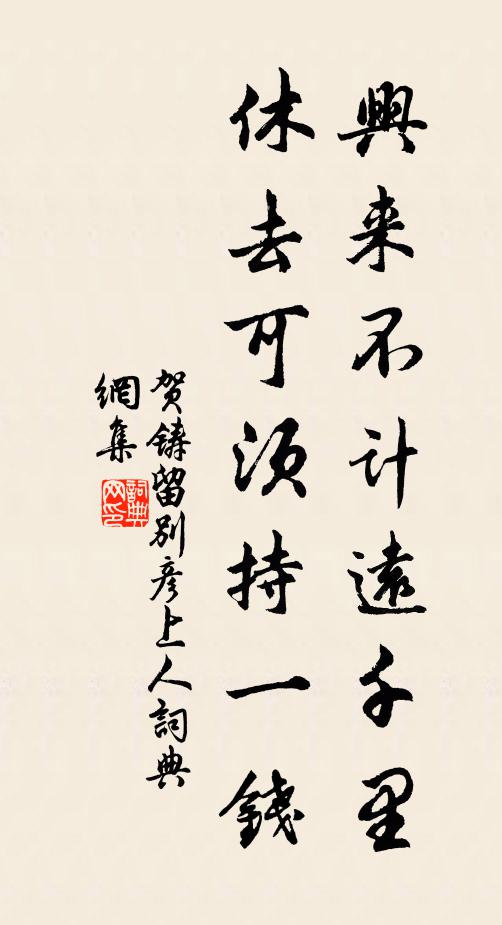 興来不计遠千里
休去可须持一錢
贺鑄留别彦上人詞典
網集
詞典
网印